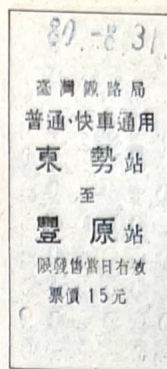 80.-8.31
臺灣鐵路局
普通、快車通用
東勢站
至
豐原站
限發售當日有效
票價15元